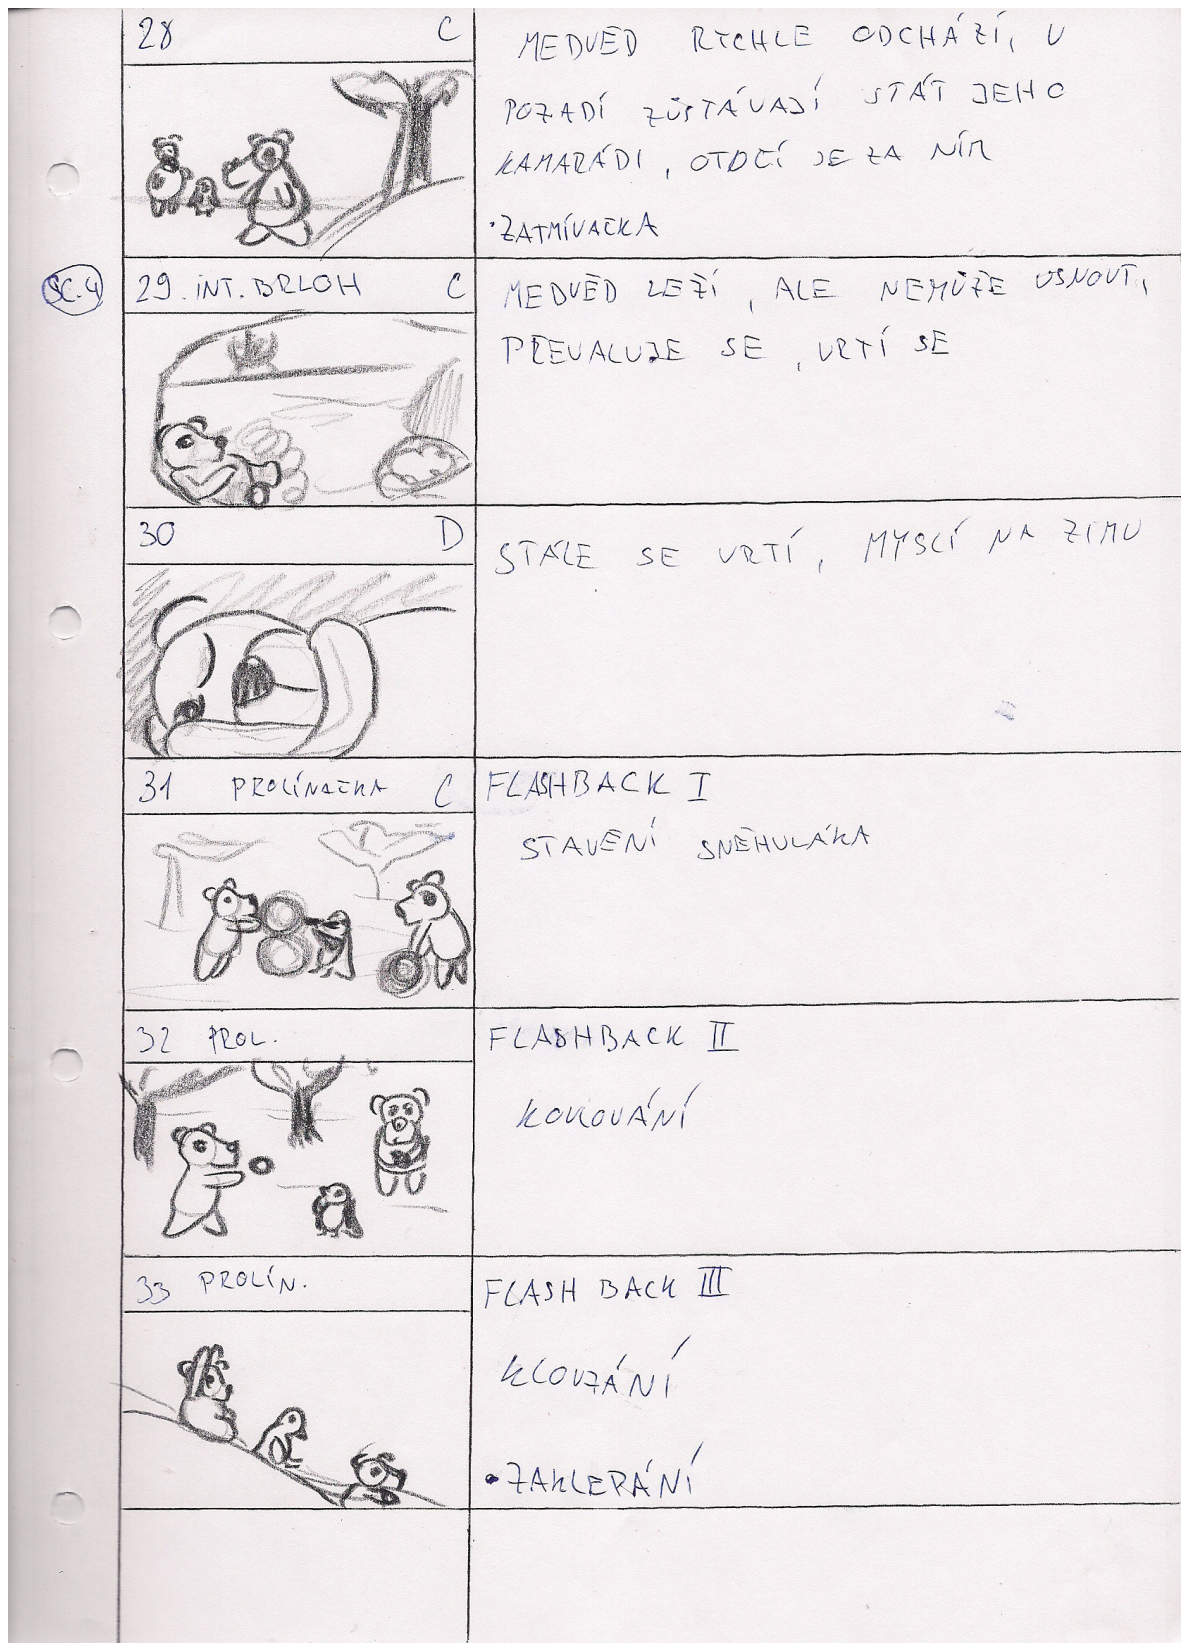 28 C
MEDVĚD RYCHLE ODCHÁZÍ, V
POZADÍ ZŮSTÁVAJÍ STÁT JEHO
KAMARÁDI, OTOČÍ SE ZA NÍM
• ZATMÍVAČKA
SC.4
29. INT. BRLOH C
MEDVĚD LEŽÍ, ALE NEMŮŽE USNOUT,
PŘEVALUJE SE, VRTÍ SE
30 D
STÁLE SE VRTÍ, MYSLÍ NA ZIMU
31 PROLÍNAČKA C
FLASHBACK I
STAVĚNÍ SNĚHULÁKA
32 PROL.
FLASHBACK II
KOULOVÁNÍ
33 PROLÍN.
FLASH BACK III
KLOUZÁNÍ
• ZAKLEPÁNÍ